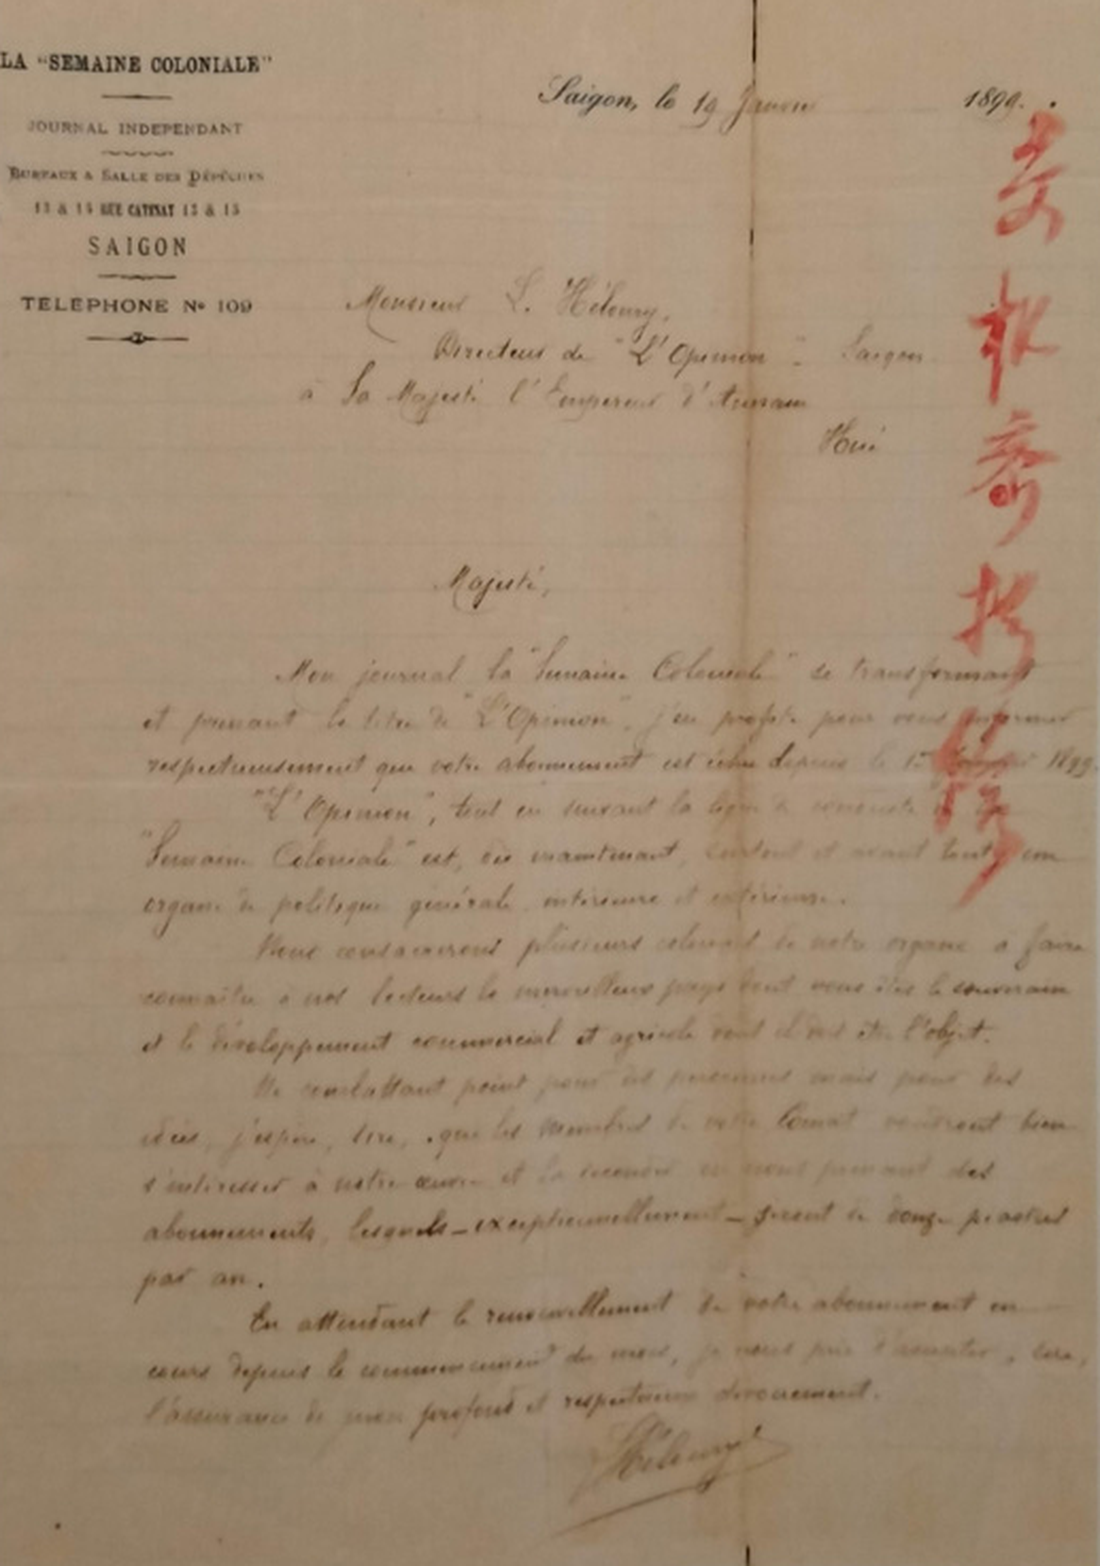 LA "SEMAINE COLONIALE"
JOURNAL INDEPENDANT
BUREAUX & SALLE DES DÉPÊCHES
13 & 15 RUE CATINAT 13 & 15
SAIGON
TELEPHONE No 109
Saigon, le 19 Janvier 1899.
Monsieur L. Héloury,
Directeur de "L'Opinion" - Saigon
à Sa Majesté l'Empereur d'Annam
Hué
Majesté,
Mon journal la "Semaine Coloniale" se transformant
et prenant le titre de "L'Opinion", j'en profite pour vous informer
respectueusement que votre abonnement est échu depuis le 1er 1899.
"L'Opinion", tout en suivant la ligne de conduite de la
"Semaine Coloniale" est, dès maintenant, surtout et avant tout, un
organe de politique générale intérieure et extérieure.
Nous consacrerons plusieurs colonnes de notre organe à faire
connaître à nos lecteurs le merveilleux pays dont vous êtes le souverain
et le développement commercial et agricole dont il doit être l'objet.
Ne combattant point pour des personnes mais pour des
idées, j'espère, Sire, que les membres de votre Comat voudront bien
s'intéresser à notre œuvre et la seconder en nous prenant des
abonnements, lesquels - exceptionnellement - seront de douze piastres
par an.
En attendant le renouvellement de votre abonnement en
cours depuis le commencement du mois, je vous prie d'accepter, Sire,
l'assurance de mon profond et respectueux dévouement.
Héloury